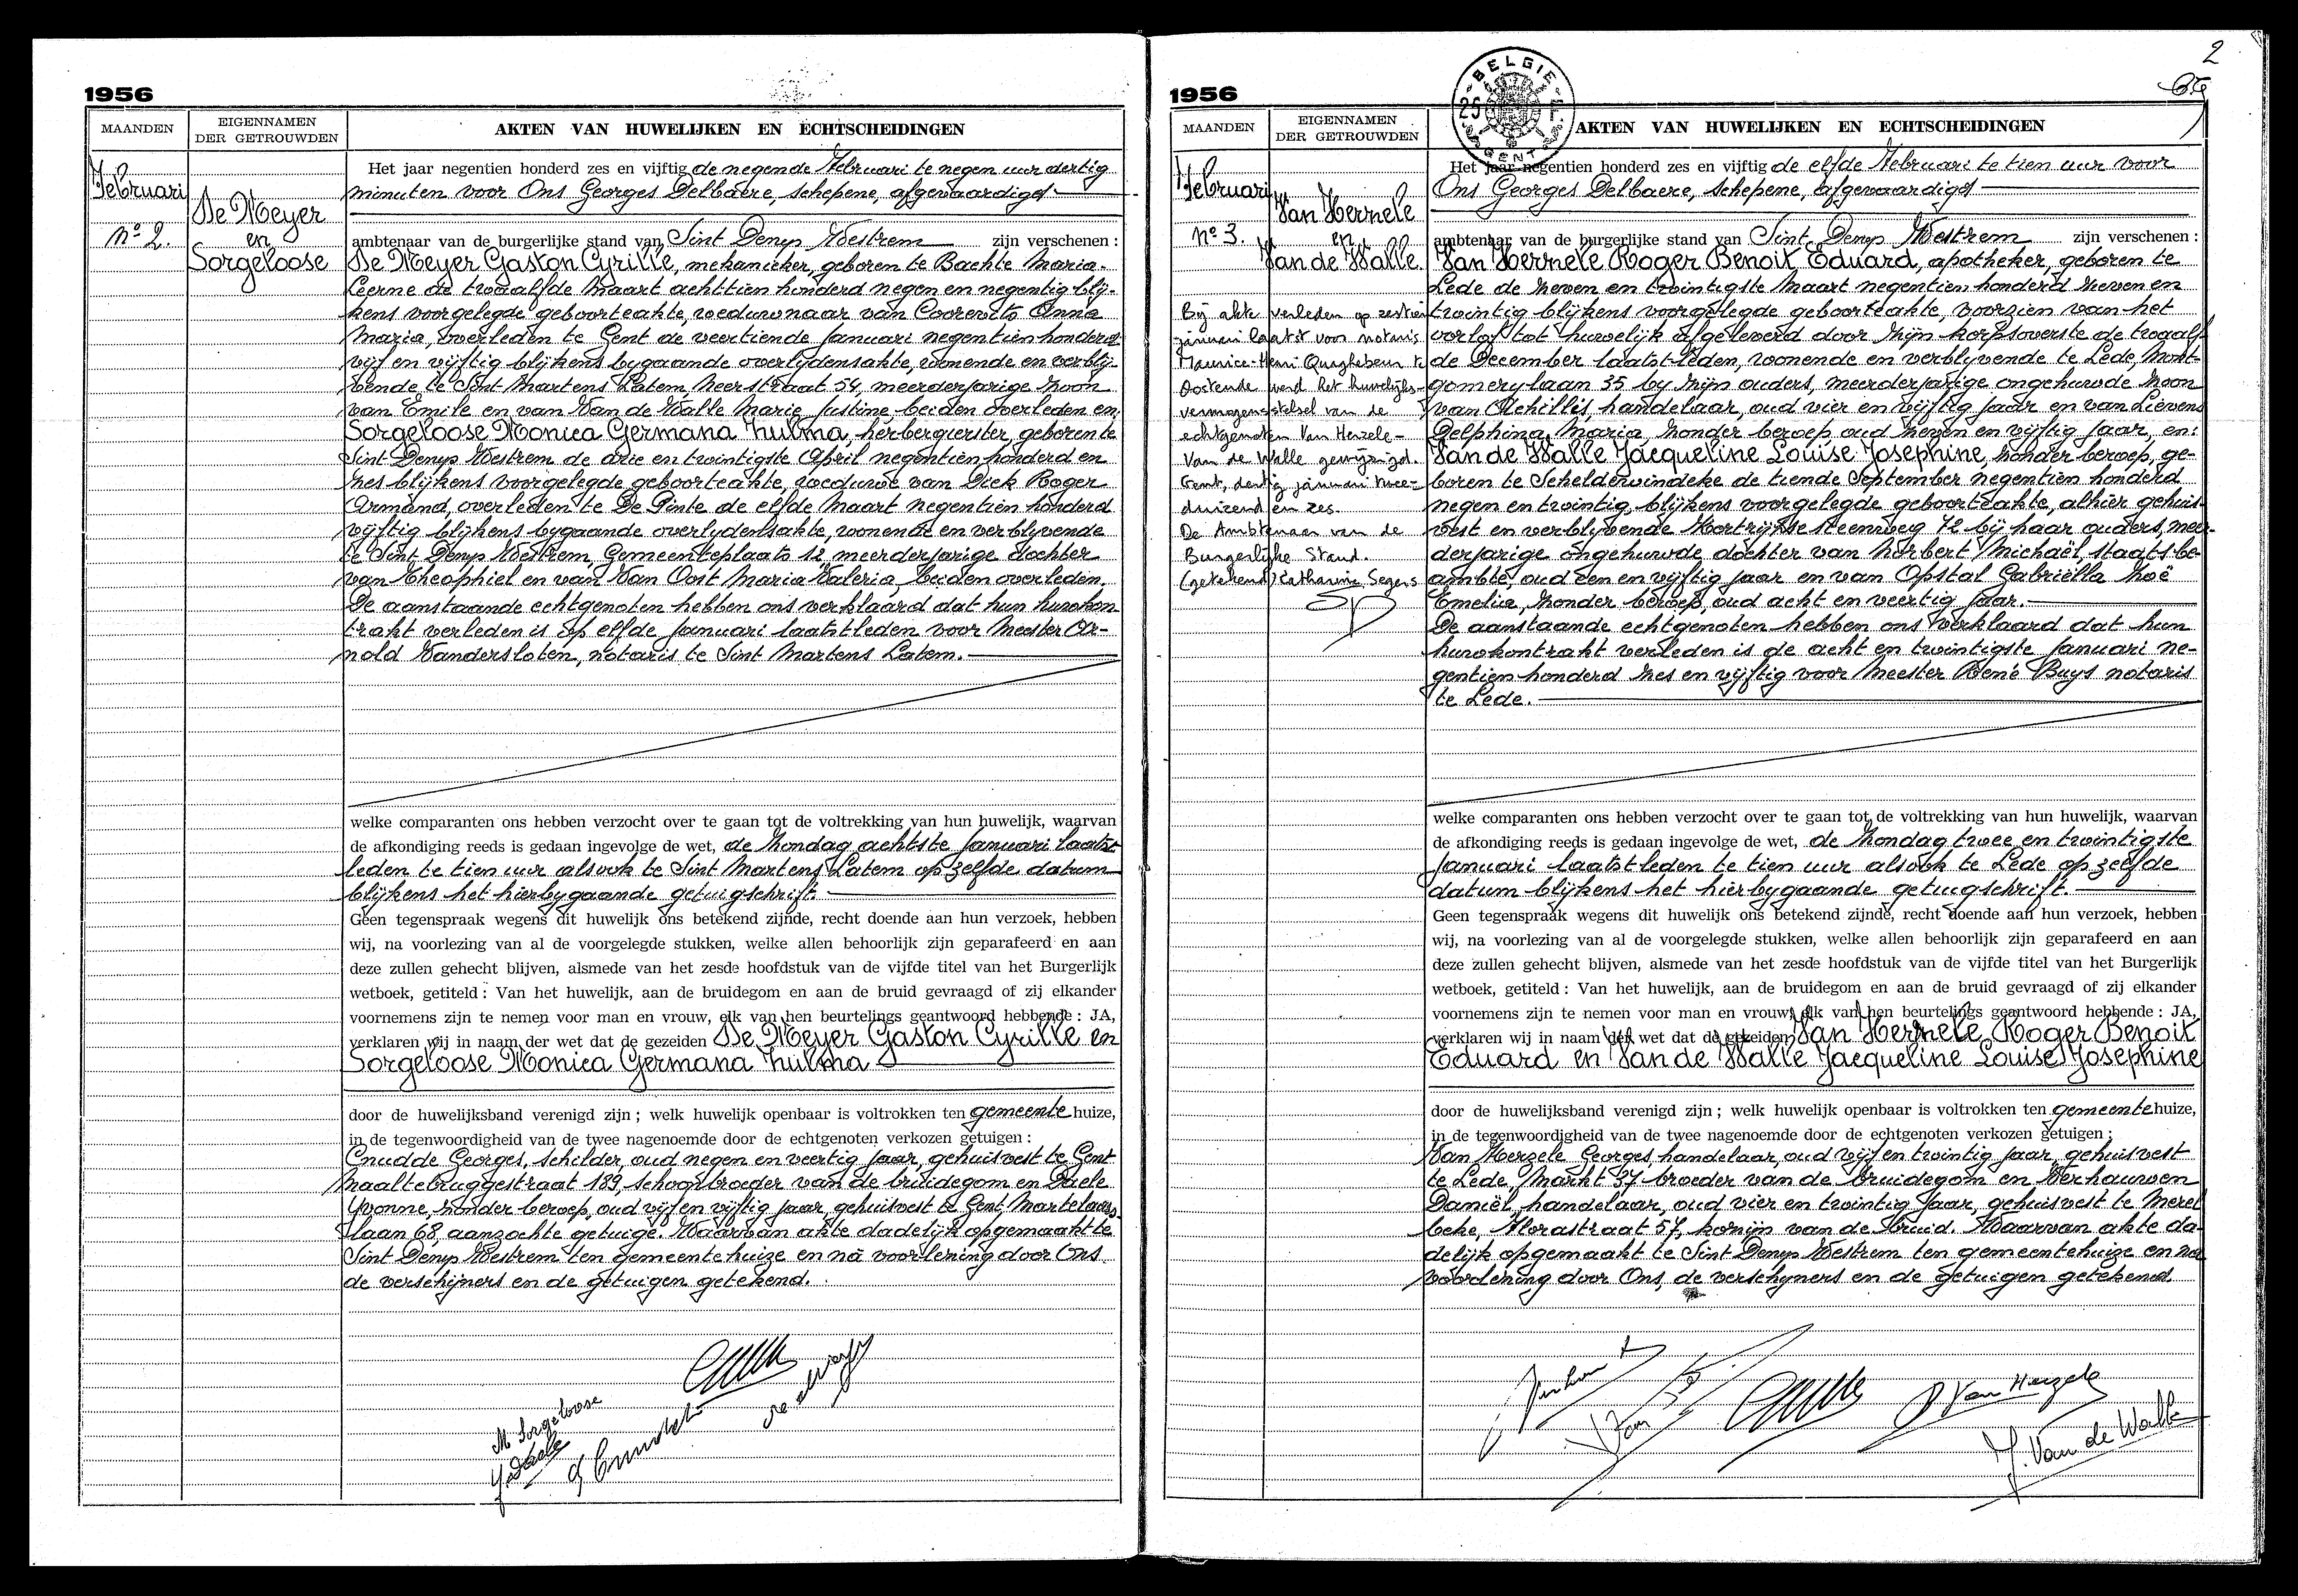 1956
MAANDEN
EIGENNAMEN
DER GETROUWDEN
AKTEN VAN HUWELIJKEN EN ECHTSCHEIDINGEN
Februari
No 2.
De Meyer
en
Sorgeloose
Het jaar negentien honderd zes en vijftig de negende Februari te negen uur dertig
minuten voor Ons Georges Delbaere, schepene, afgevaardigd
ambtenaar van de burgerlijke stand van Sint Denys Westrem zijn verschenen :
De Meyer Gaston Cyrille, mekanieker, geboren te Bachte Maria-
Leerne de twaalfde Maart achttien honderd negen en negentig blij-
kens voorgelegde geboorteakte, weduwnaar van Coorevits Anna
Maria, overleden te Gent de veertiende Januari negentien honderd
vijf en vijftig blijkens bygaande overlydensakte, wonende en verbly-
vende te Sint Martens Latem, Meerstraat 54, meerderjarige zoon
van Emile en van Van de Walle Marie Justine beiden overleden en
Sorgeloose Monica Germana Zulma, herbergierster, geboren te
Sint Denys Westrem de drie en twintigste April negentien honderd en
zes blijkens voorgelegde geboorteakte, weduwe van Dick Roger
Armand, overleden te De Pinte de elfde Maart negentien honderd
vijftig blijkens bygaande overlydensakte, wonende en verblyvende
te Sint Denys Westrem Gemeenteplaats 12, meerderjarige dochter
van Theophiel en van Van Oost Maria Valeria, beiden overleden.
De aanstaande echtgenoten hebben ons verklaard dat hun huwkon-
trakt verleden is op elfde Januari laatstleden voor Meester Ar-
nold Vandersloten, notaris te Sint Martens Latem.
welke comparanten ons hebben verzocht over te gaan tot de voltrekking van hun huwelijk, waarvan
de afkondiging reeds is gedaan ingevolge de wet, de Zondag achtste Januari laatst
leden te tien uur alsook te Sint Martens Latem op zelfde datum
blijkens het hierbygaande getuigschrift.
Geen tegenspraak wegens dit huwelijk ons betekend zijnde, recht doende aan hun verzoek, hebben
wij, na voorlezing van al de voorgelegde stukken, welke allen behoorlijk zijn geparafeerd en aan
deze zullen gehecht blijven, alsmede van het zesde hoofdstuk van de vijfde titel van het Burgerlijk
wetboek, getiteld : Van het huwelijk, aan de bruidegom en aan de bruid gevraagd of zij elkander
voornemens zijn te nemen voor man en vrouw, elk van hen beurtelings geantwoord hebbende : JA,
verklaren wij in naam der wet dat de gezeiden De Meyer Gaston Cyrille en
Sorgeloose Monica Germana Zulma
door de huwelijksband verenigd zijn ; welk huwelijk openbaar is voltrokken ten gemeente huize,
in de tegenwoordigheid van de twee nagenoemde door de echtgenoten verkozen getuigen :
Cnudde Georges, schilder, oud negen en veertig jaar, gehuisvest te Gent
Maaltebruggestraat 189, schoonbroeder van de bruidegom en Daele
Yvonne, zonder beroep, oud vijf en vijftig jaar, gehuisvest te Gent, Martelaars-
laan 68, aanzochte getuige. Waarvan akte dadelijk opgemaakt te
Sint Denys Westrem ten gemeentehuize en na voorlezing door Ons
de verschijners en de getuigen getekend.
M Sorgeloose
Y. Daele
2
1956
BELGIE
25
GENT
MAANDEN
EIGENNAMEN
DER GETROUWDEN
AKTEN VAN HUWELIJKEN EN ECHTSCHEIDINGEN
Februari
No 3.
Van Herzele
en
Van de Walle
Bij akte verleden op zestien
januari laatst voor notaris
Maurice-Henri Quaghebeur te
Oostende werd het huwelijks-
vermogensstelsel van de
echtgenoten Van Herzele-
Van de Walle gewijzigd.
Gent, dertig januari twee-
duizend en zes.
De Ambtenaar van de
Burgerlijke Stand.
(getekend) Katharina Segers
Het jaar negentien honderd zes en vijftig de elfde Februari te tien uur voor
Ons Georges Delbaere, schepene, afgevaardigd
ambtenaar van de burgerlijke stand van Sint Denys Westrem zijn verschenen :
Van Herzele Roger Benoit Eduard, apotheker, geboren te
Lede de zeven en twintigste Maart negentien honderd zeven en
twintig blijkens voorgelegde geboorteakte, voorzien van het
verlof tot huwelijk afgeleverd door zijn korpsoverste de twaalf-
de December laatst-leden, wonende en verblyvende te Lede, Mont-
gomerylaan 35 by zijn ouders, meerderjarige ongehuwde zoon
van Achilles, handelaar, oud vier en vijftig jaar en van Lievens
Delphina Maria, zonder beroep oud zeven en vijftig jaar, en:
Van de Walle Jacqueline Louise Josephine, zonder beroep, ge-
boren te Scheldewindeke de tiende September negentien honderd
negen en twintig blijkens voorgelegde geboorteakte, alhier gehuis-
vest en verblyvende Kortrijkse steenweg 72 bij haar ouders, meer-
derjarige ongehuwde dochter van Norbert Michaël, staatsbe-
ambte, oud een en vijftig jaar en van Opstal Gabriëlla Zoë
Emelia, zonder beroep, oud acht en veertig jaar.
De aanstaande echtgenoten hebben ons verklaard dat hun
huwkontrakt verleden is de acht en twintigste Januari ne-
gentien honderd zes en vijftig voor Meester René Buys notaris
te Lede.
welke comparanten ons hebben verzocht over te gaan tot de voltrekking van hun huwelijk, waarvan
de afkondiging reeds is gedaan ingevolge de wet, de Zondag twee en twintigste
Januari laatst leden te tien uur alsook te Lede op zelfde
datum blijkens het hierbygaande getuigschrift.
Geen tegenspraak wegens dit huwelijk ons betekend zijnde, recht doende aan hun verzoek, hebben
wij, na voorlezing van al de voorgelegde stukken, welke allen behoorlijk zijn geparafeerd en aan
deze zullen gehecht blijven, alsmede van het zesde hoofdstuk van de vijfde titel van het Burgerlijk
wetboek, getiteld : Van het huwelijk, aan de bruidegom en aan de bruid gevraagd of zij elkander
voornemens zijn te nemen voor man en vrouw, elk van hen beurtelings geantwoord hebbende : JA,
verklaren wij in naam der wet dat de gezeiden Van Herzele Roger Benoit
Eduard en Van de Walle Jacqueline Louise Josephine
door de huwelijksband verenigd zijn ; welk huwelijk openbaar is voltrokken ten gemeente huize,
in de tegenwoordigheid van de twee nagenoemde door de echtgenoten verkozen getuigen :
Van Herzele Georges, handelaar, oud vijf en twintig jaar, gehuisvest
te Lede, Markt 37 broeder van de bruidegom en Verhauwen
Daniël, handelaar, oud vier en twintig jaar, gehuisvest te Merel
beke, Florastraat 57, kozijn van de bruid. Waarvan akte da-
delijk opgemaakt te Sint Denys Westrem ten gemeentehuize en na
voorlezing door Ons, de verschyners en de getuigen getekend.
Van Herzele
J. Van de Walle